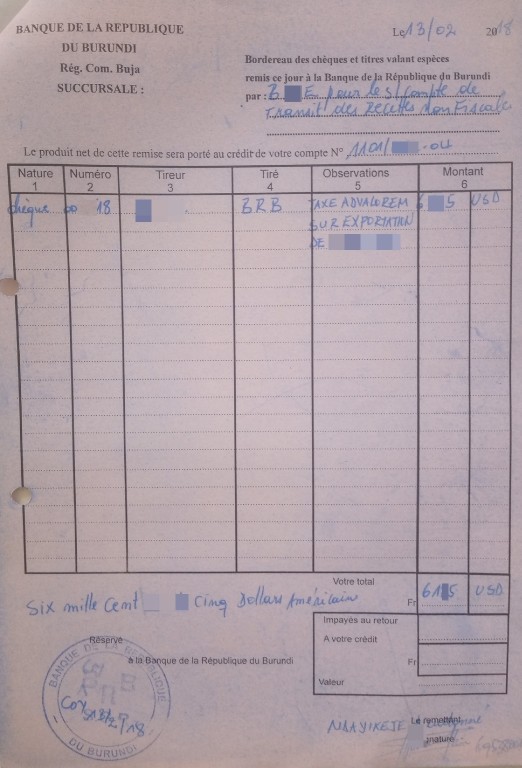 BANQUE DE LA REPUBLIQUE
DU BURUNDI
Rég. Com. Buja
SUCCURSALE :
Le 13/02 2018
Bordereau des chèques et titres valant espèces
remis ce jour à la Banque de la République du Burundi
par : B E pour le s/compte de
Transit des Recettes non Fiscales
Le produit net de cette remise sera porté au crédit de votre compte N° 1101/ -04
Nature Numéro Tireur Tiré Observations Montant
1 2 3 4 5 6
chèque 00 18 BRB TAXE ADVALOREM 6 5 USD
SUR EXPORTATION
DE
Votre total
Fr 61 5 USD
Six mille Cent Cinq Dollars Américain
Impayés au retour
Réservé A votre crédit
à la Banque de la République du Burundi Fr
Valeur
BANQUE DE LA REPUBLIQUE
DU BURUNDI
Le remettant